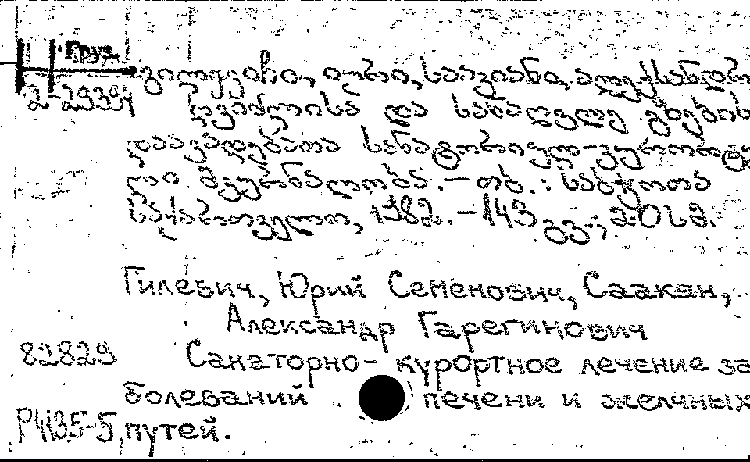 Груз.
გილევიჩი, იური, სააკიანი, ალექსანდრ
2-29394 ღვიძლისა და სანაღვლე გზების
დაავადებათა სანატორიულ-კურორტუ
ლი მკურნალობა. – თბ.: საბჭოთა
საქართველო, 1982. – 143 გვ.; 20 სმ.
Гилевич, Юрий Семенович, Саакан,
Александр Гарегинович
82829 Санаторно-курортное лечение за
болеваний печени и желчных
Р4135-5, путей.